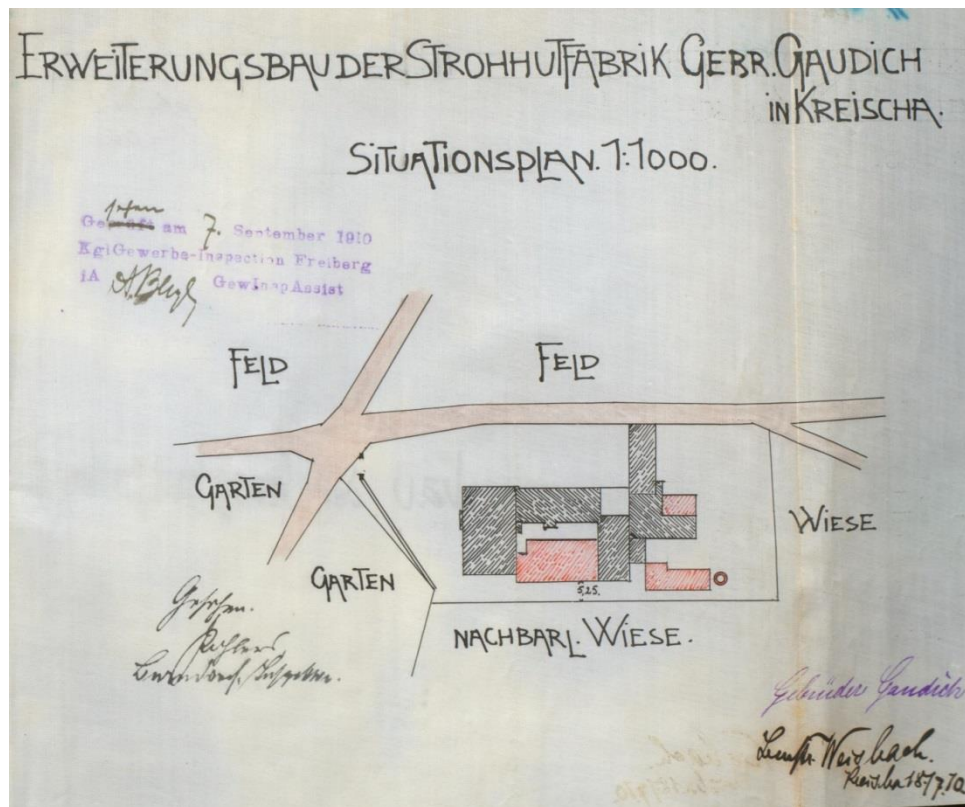 ERWEITERUNGSBAU DER STROHHUTFABRIK GEBR. GAUDICH
IN KREISCHA.
SITUATIONSPLAN. 1:1000.
sehen
Geprüft am 7. September 1910
KglGewerbe-Inspection Freiberg
iA GewInspAssist
FELD
FELD
GARTEN
WIESE
GARTEN
5,25.
NACHBARL. WIESE.
Gesehen.
Gebrüder Gaudich
Weisbach.
Kreischa 18/7.10.